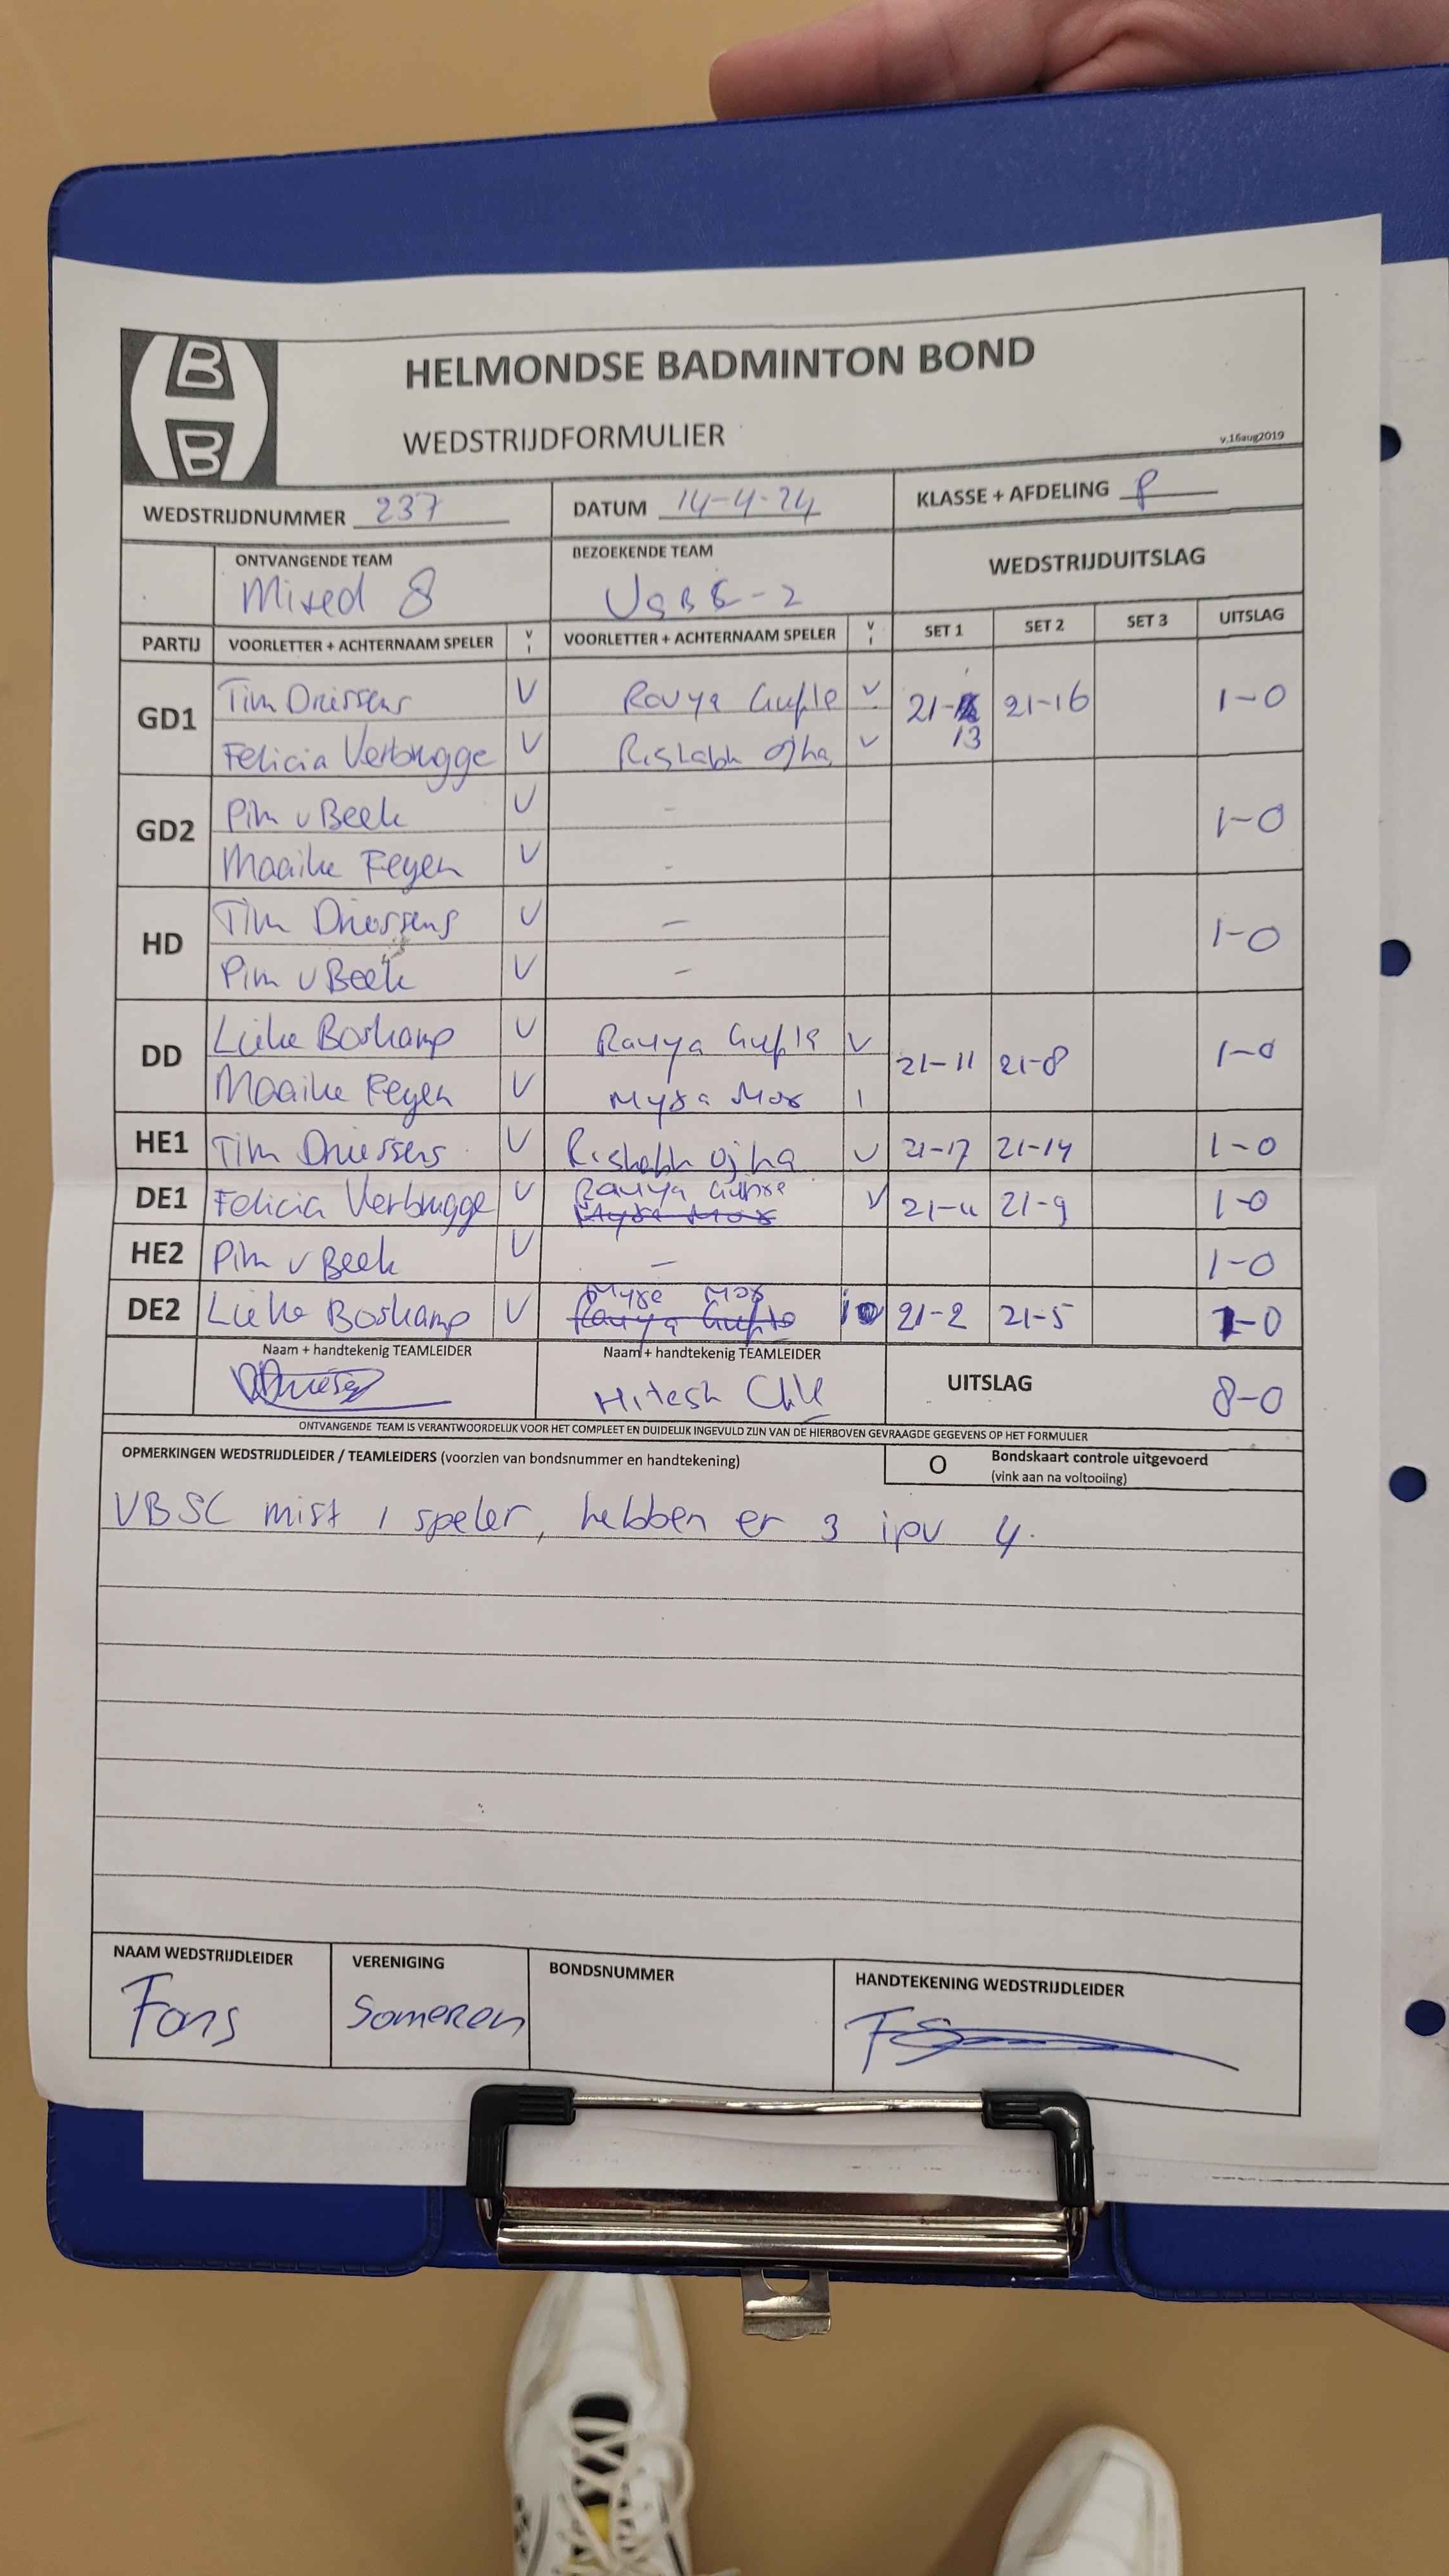 B
B
HELMONDSE BADMINTON BOND
WEDSTRIJDFORMULIER
v.16aug2019
WEDSTRIJDNUMMER 237 DATUM 14-4-24 KLASSE + AFDELING P
ONTVANGENDE TEAM BEZOEKENDE TEAM WEDSTRIJDUITSLAG
Mixed 8
PARTIJ VOORLETTER + ACHTERNAAM SPELER V I VOORLETTER + ACHTERNAAM SPELER V I SET 1 SET 2 SET 3 UITSLAG
GD1 Tim Driessens V Rauya Gupta V 21-13 21-16 1-0
Felicia Verbrugge V Rishabh Ojha V
GD2 Pim v Beek V - 1-0
Maaike Feyen V -
HD Tim Driessens V - 1-0
Pim v Beek V -
DD Lieke Boskamp V Rauya Gupta V 21-11 21-8 1-0
Maaike Feyen V Myra Mor I
HE1 Tim Driessens V Rishabh Ojha V 21-17 21-14 1-0
DE1 Felicia Verbrugge V Rauya V 21-9 1-0
HE2 Pim v Beek V - 1-0
DE2 Lieke Boskamp V Mor 21-2 21-5 1-0
Naam + handtekenig TEAMLEIDER Naam + handtekenig TEAMLEIDER UITSLAG 8-0
Hitesh
ONTVANGENDE TEAM IS VERANTWOORDELIJK VOOR HET COMPLEET EN DUIDELIJK INGEVULD ZIJN VAN DE HIERBOVEN GEVRAAGDE GEGEVENS OP HET FORMULIER
OPMERKINGEN WEDSTRIJDLEIDER / TEAMLEIDERS (voorzien van bondsnummer en handtekening) O Bondskaart controle uitgevoerd
(vink aan na voltooiing)
VBSC mist 1 speler, hebben er 3 ipv 4.
NAAM WEDSTRIJDLEIDER VERENIGING BONDSNUMMER HANDTEKENING WEDSTRIJDLEIDER
Fons Someren